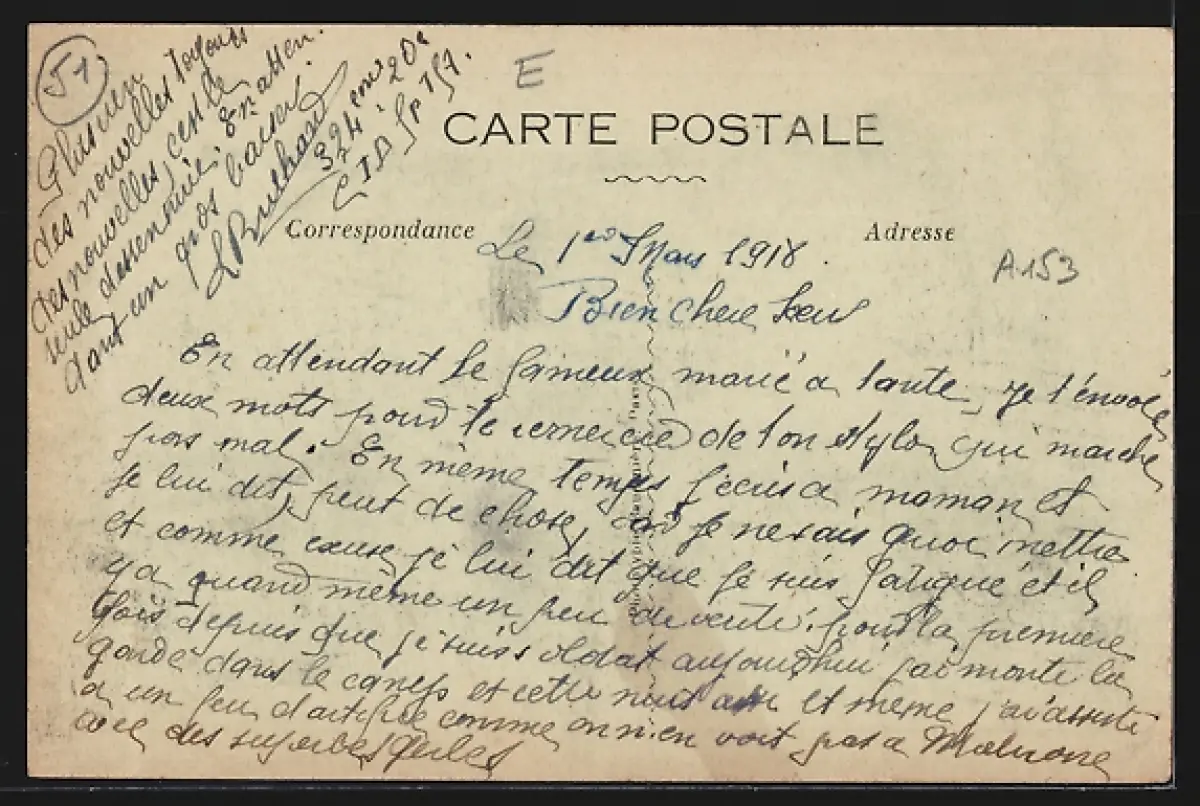 51
E
CARTE POSTALE
Correspondance
Adresse
A153
Le 1er Mars 1918.
Bien chere Seur
En attendant le fameux marié a tante, je t'envoie
deux mots pour te remercier de ton stylo qui marche
pas mal. En même temps j'écris a maman et
je lui dit peut de chose, car je ne sais quoi mettre
et comme excuse je lui dit que je suis fatigué et il
y a quand même un peu de verité. pour la premiere
fois depuis que je suis soldat aujourd'hui j'ai monté la
garde dans le camp et cette nuit et meme j'ai assisté
a un feu d'artifice comme on n'en voit pas a
avec des superbes gerbes
des nouvelles toujours
des nouvelles, c'est le
seule desennuie. En atten
dant un gros baiser
324 20e
CID SP 157.